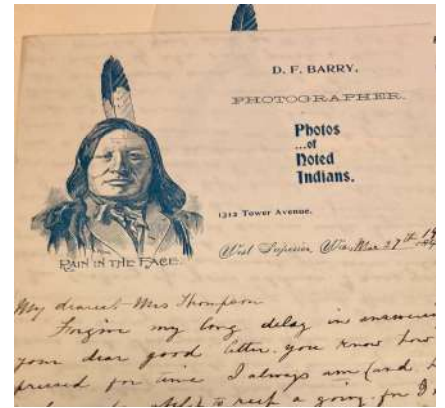 D. F. BARRY,
PHOTOGRAPHER.
Photos
...of
Noted
Indians.
1312 Tower Avenue.
West Superior, Wis. Mar 27th
RAIN IN THE FACE.
My dearest Mrs Thompson
Forgive my long delay in
your dear good letter. you know how
pressed for time I always am (and
a going. for I